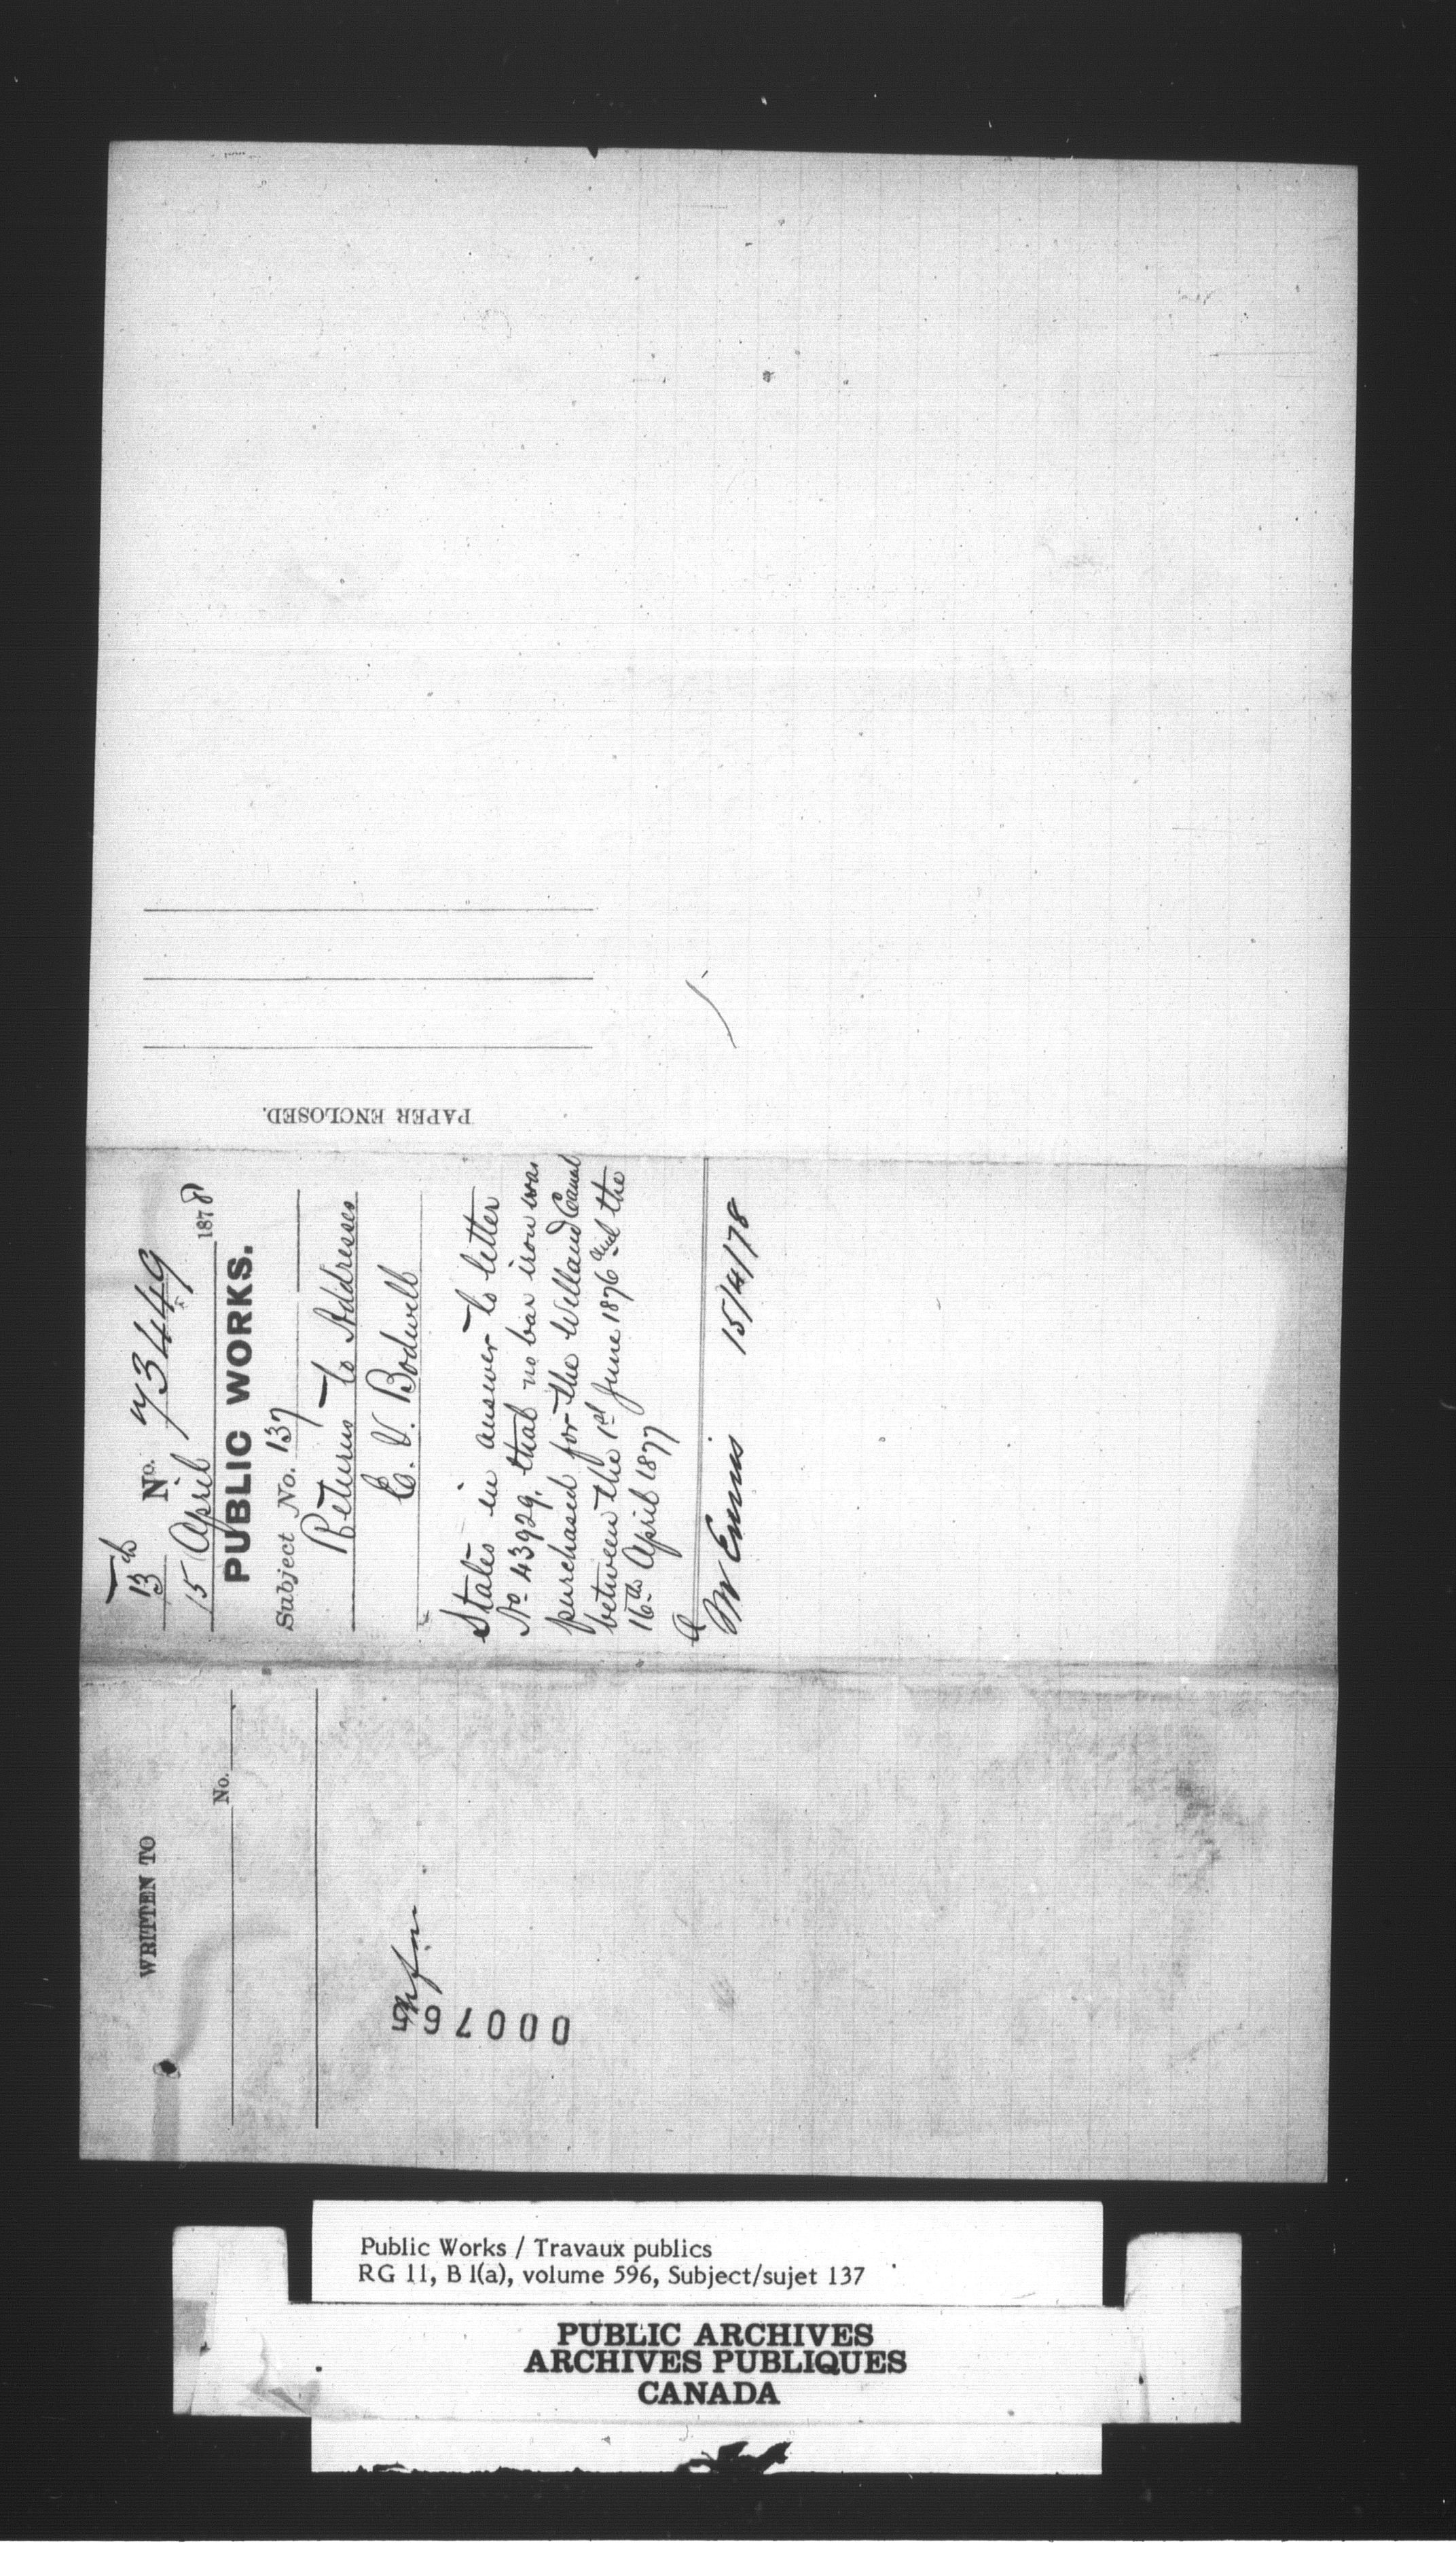 PAPER ENCLOSED.
13th
No. 73449
15 April 1878
PUBLIC WORKS.
Subject No. 137
Returns to Addresses
E. V. Bodwell
States in answer to letter
No 43929, that no bar iron was
purchased for the Welland Canal
between the 1st June 1876 and the
16th April 1877
Mr Ennis 15/4/78
WRITTEN TO
No.
000765
Public Works / Travaux publics
RG 11, B 1(a), volume 596, Subject/sujet 137
PUBLIC ARCHIVES
ARCHIVES PUBLIQUES
CANADA